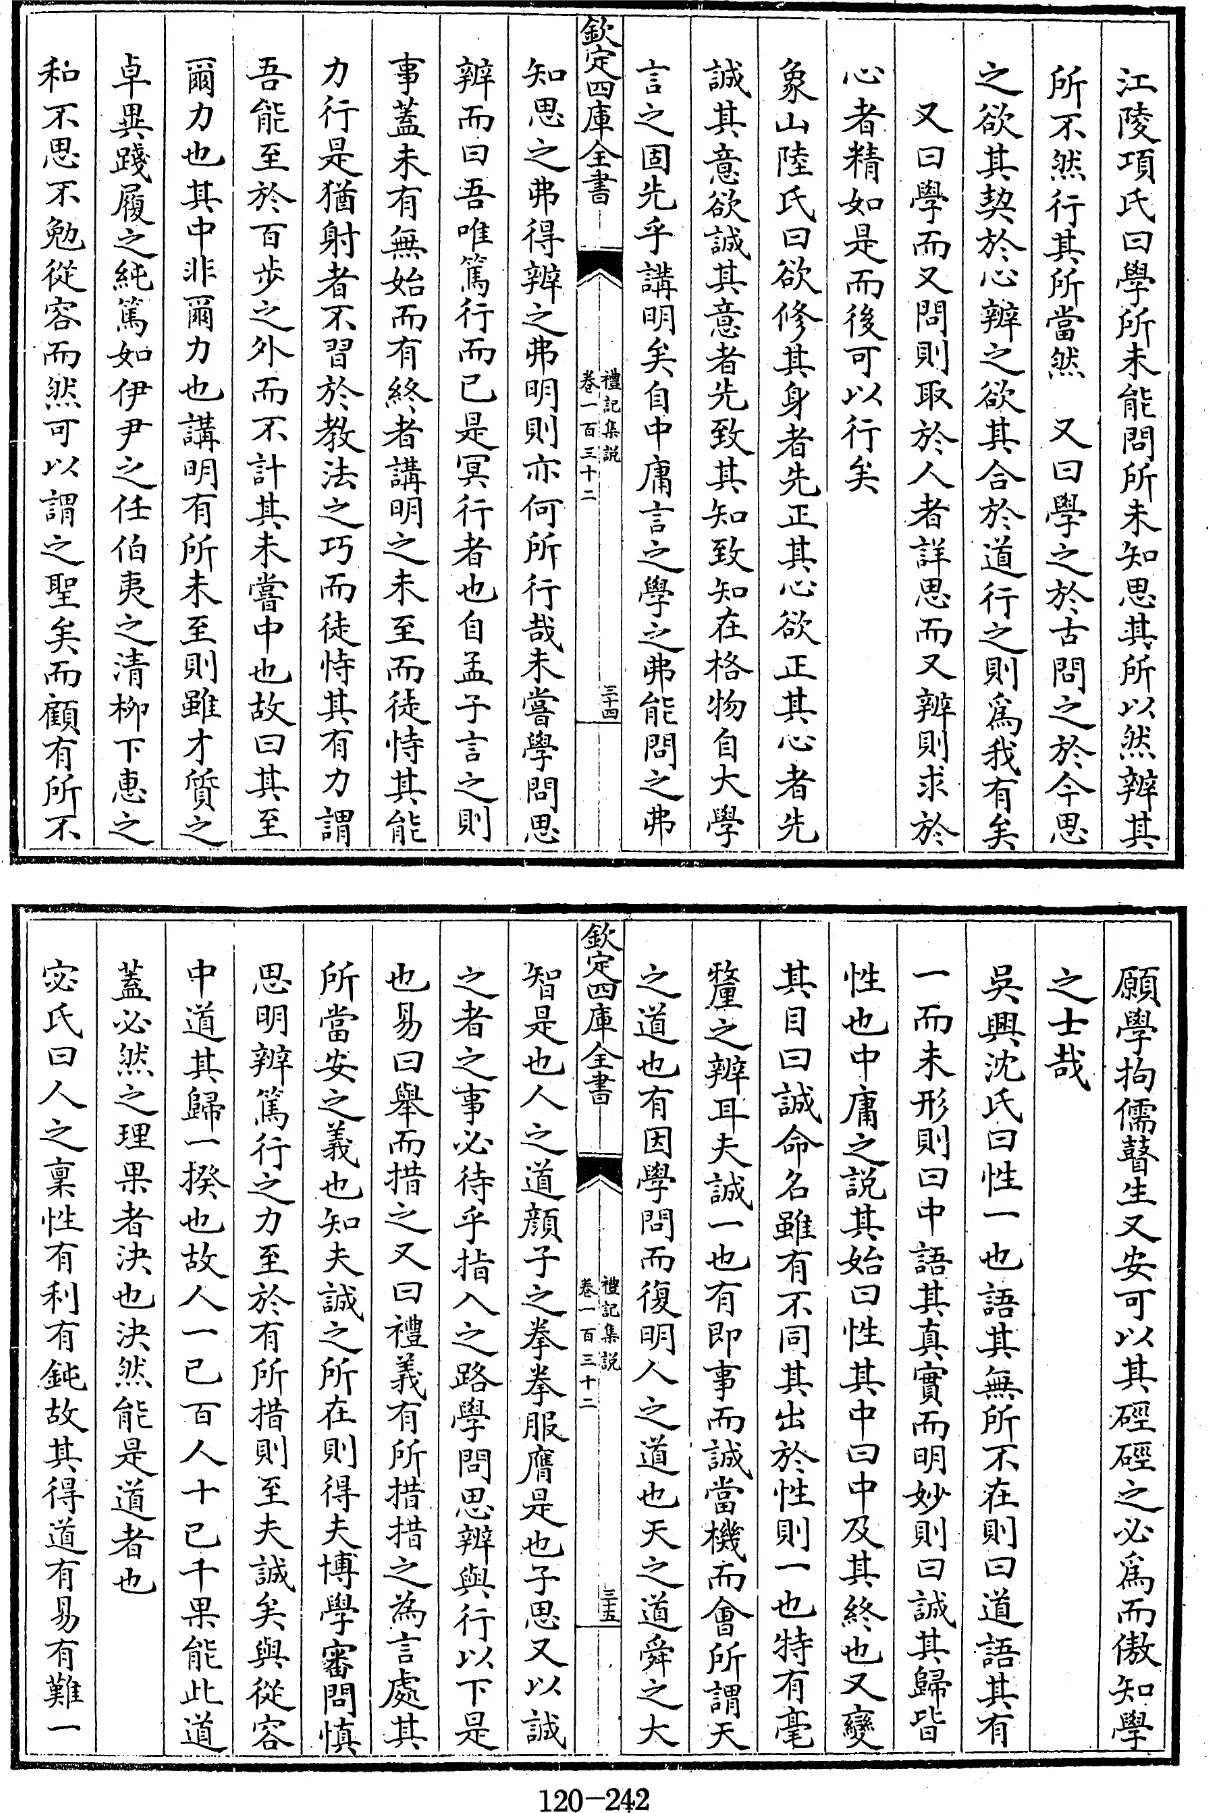 江陵項氏曰學所未能問所未知思其所以然辨其
所不然行其所當然　又曰學之於古問之於今思
之欲其契於心辨之欲其合於道行之則爲我有矣
又曰學而又問則取於人者詳思而又辨則求於
心者精如是而後可以行矣
象山陸氏曰欲修其身者先正其心欲正其心者先
誠其意欲誠其意者先致其知致知在格物自大學
言之固先乎講明矣自中庸言之學之弗能問之弗
欽定四庫全書
禮記集説
卷一百三十二
三十四
知思之弗得辨之弗明則亦何所行哉未嘗學問思
辨而曰吾唯篤行而已是冥行者也自孟子言之則
事蓋未有無始而有終者講明之未至而徒恃其能
力行是猶射者不習於教法之巧而徒恃其有力謂
吾能至於百步之外而不計其未嘗中也故曰其至
爾力也其中非爾力也講明有所未至則雖才質之
卓異踐履之純篤如伊尹之任伯夷之清柳下惠之
和不思不勉從容而然可以謂之聖矣而顧有所不
願學拘儒瞽生又安可以其硜硜之必爲而傲知學
之士哉
吳興沈氏曰性一也語其無所不在則曰道語其有
一而未形則曰中語其真實而明妙則曰誠其歸皆
性也中庸之説其始曰性其中曰中及其終也又變
其目曰誠命名雖有不同其出於性則一也特有毫
釐之辨耳夫誠一也有即事而誠當機而會所謂天
之道也有因學問而復明人之道也天之道舜之大
欽定四庫全書
禮記集説
卷一百三十二
三十五
智是也人之道顔子之拳拳服膺是也子思又以誠
之者之事必待乎指入之路學問思辨與行以下是
也易曰舉而措之又曰禮義有所措措之為言處其
所當安之義也知夫誠之所在則得夫博學審問慎
思明辨篤行之力至於有所措則至夫誠矣與從容
中道其歸一揆也故人一己百人十己千果能此道
蓋必然之理果者決也決然能是道者也
宓氏曰人之稟性有利有鈍故其得道有易有難一
120-242